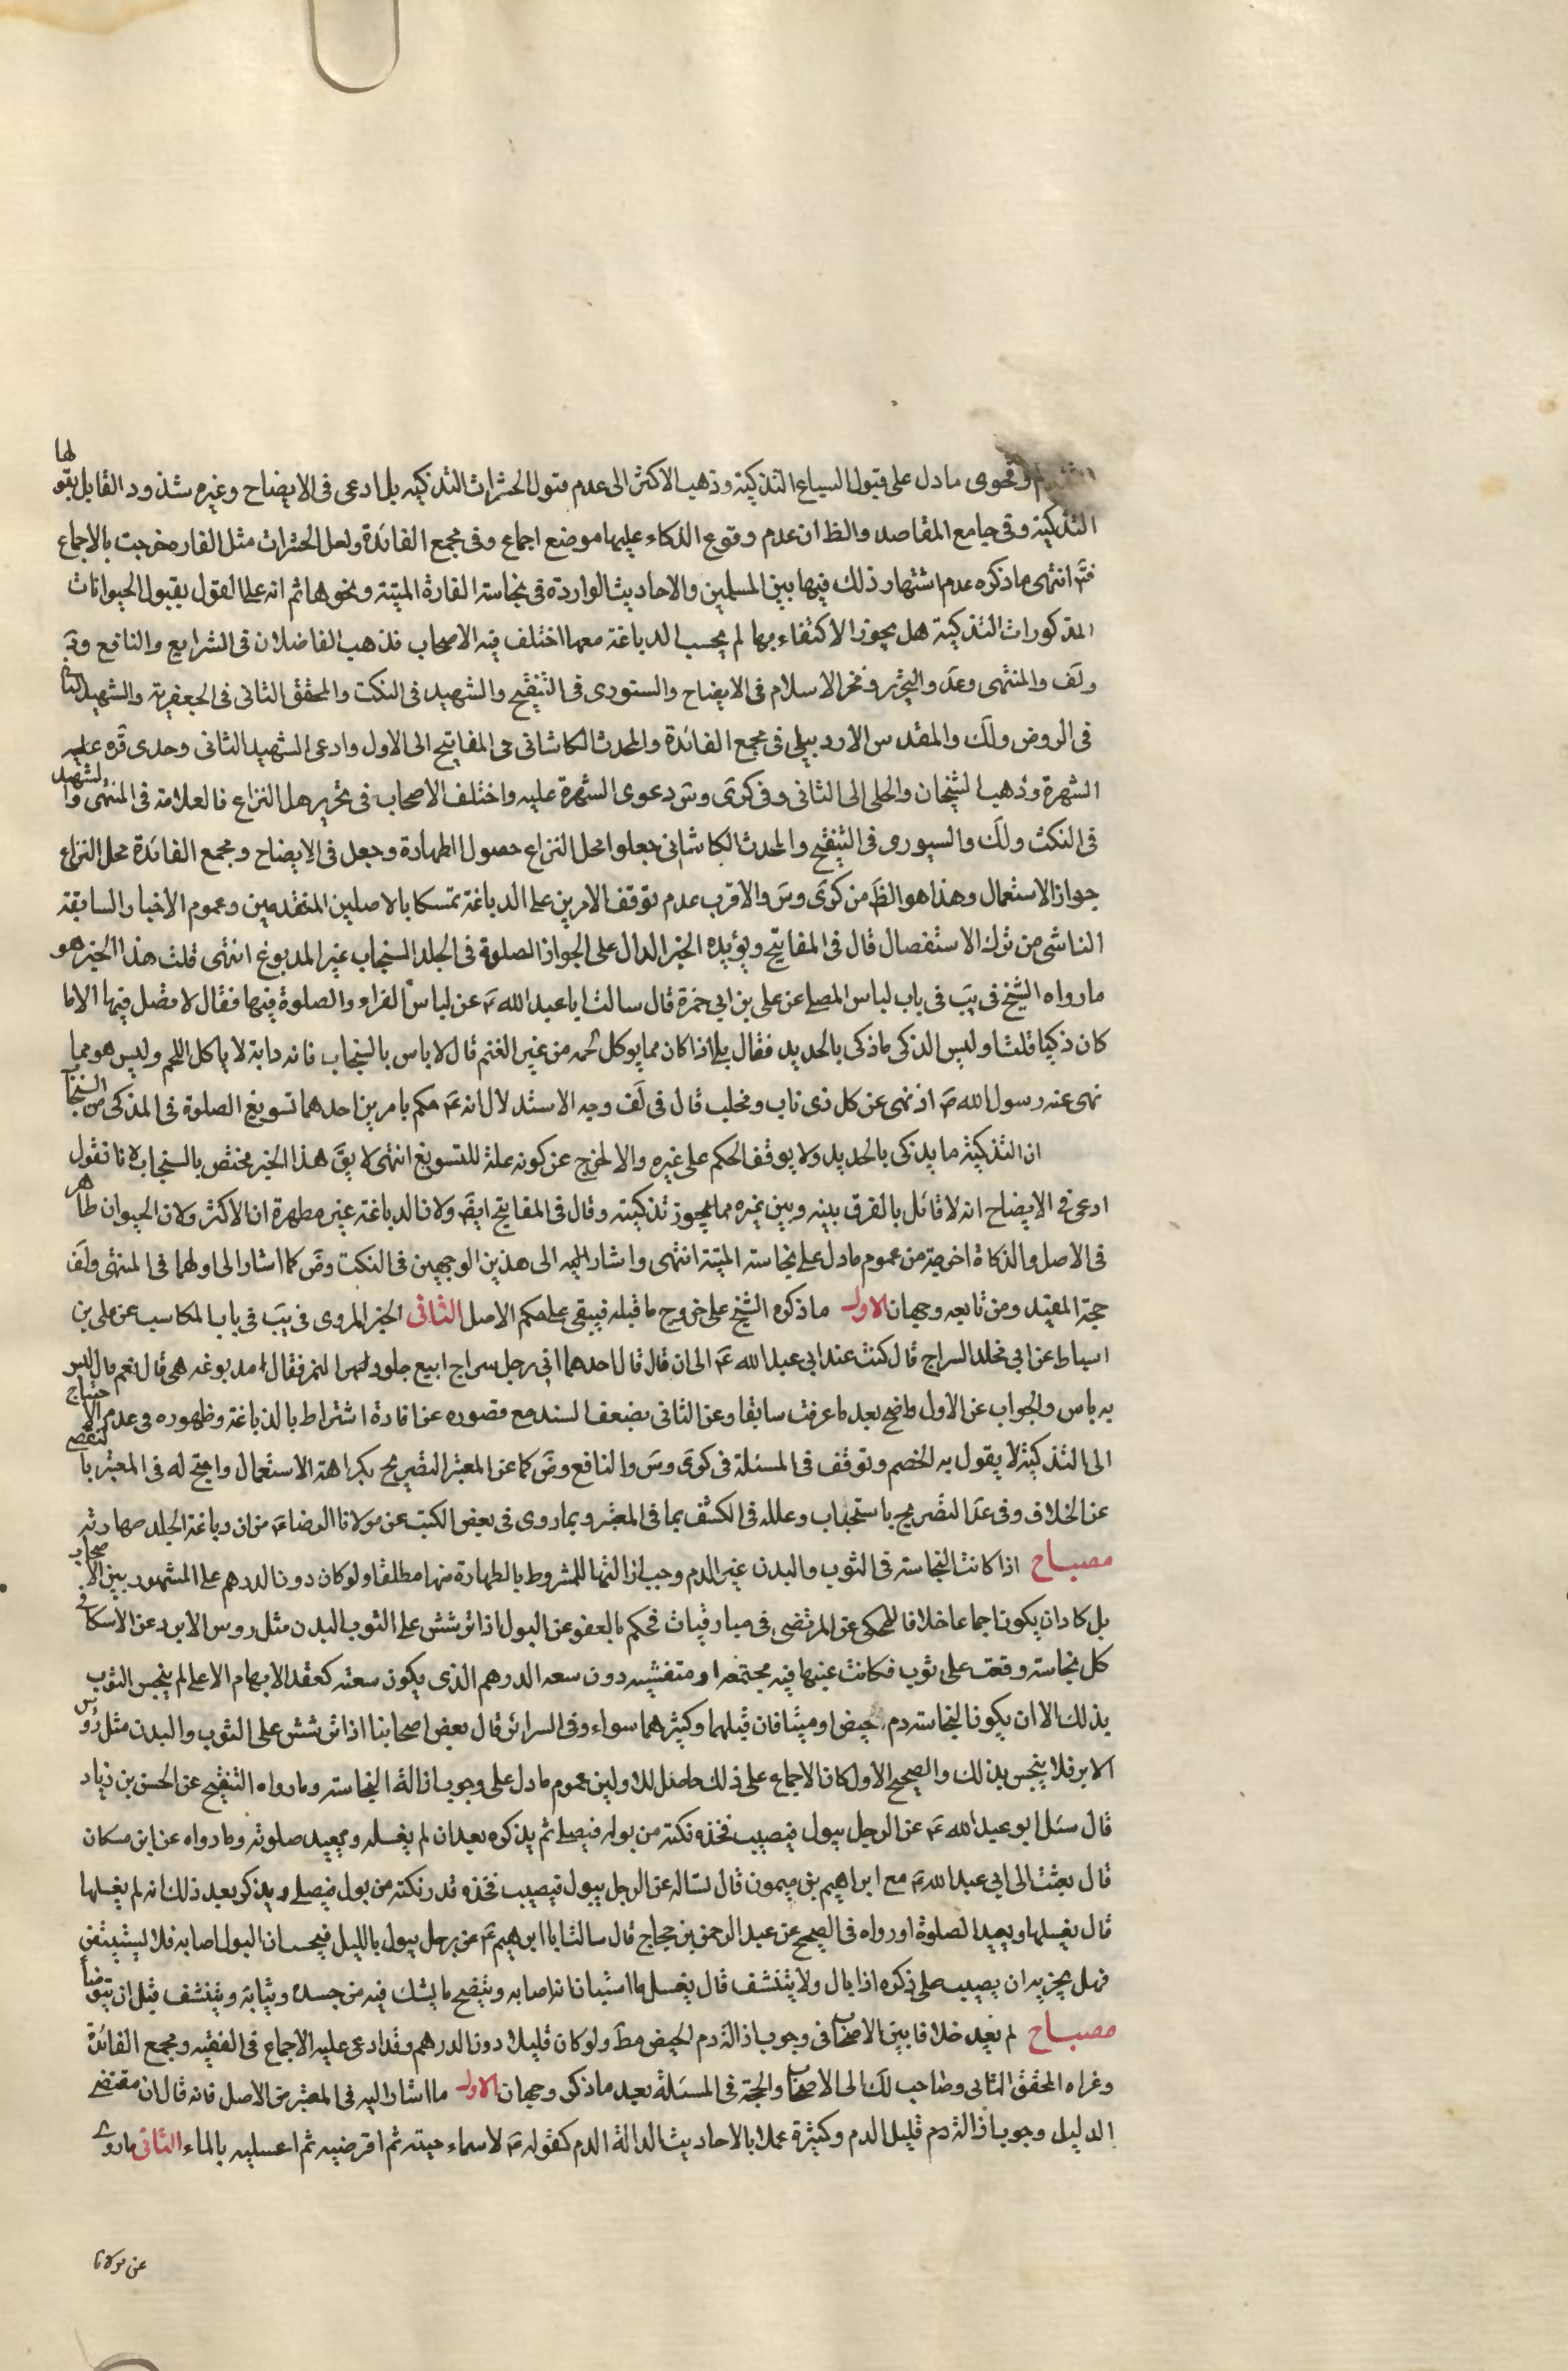 وفحوى مادل على قبول السباع التذكية وذهب الاكثر الى عدم قبول الحشرات التذكيه بل ادعى فى الايضاح وغيره شذوذ القايل بقولها
التذكية وفى جامع المقاصد والظ ان عدم وقوع الذكاء عليها موضع اجماع وفى مجمع الفائدة ولعل الحشرات مثل الفاره خرجت بالاجماع
فتم انتهى ما ذكره عدم اشتهار ذلك فيها بين المسلمين والاحاديث الواردة فى نجاسة الفارة الميتة ونحوها ثم انه على القول بقبول الحيوانات
المذكورات التذكية هل يجوز الاكتفاء بها لم يجب الدباغة معها اختلف فيه الاصحاب فذهب الفاضلان فى الشرايع والنافع وفد
ولف والمنتهى وعد والتحرير وفخر الاسلام فى الايضاح والستورى فى التنقيح والشهيد فى النكت والمحقق الثانى فى الجعفرية والشهيد الثانى
فى الروض ولك والمقدس الاردبيلى فى مجمع الفائدة والمحدث الكاشانى فى المفاتيح الى الاول وادعى الشهيد الثانى وجدى قره عليه
الشهرة وذهب الشيخان والحلى الى الثانى وفى كرى وس دعوى الشهرة عليه واختلف الاصحاب فى تحرير محل النزاع فالعلامة فى المنتهى والشهيد
فى النكت ولك والسيورى فى التنقيح والمحدث الكاشانى جعلوا محل النزاع حصول الطهارة وجعل فى الايضاح ومجمع الفائدة محل النزاع
جواز الاستعمال وهذا هو الظ من كرى وس والاقرب عدم توقف الامرين على الدباغة تمسكا بالاصلين المتقدمين وعموم الاخبار السابقة
الناشى من ترك الاستفصال قال فى المفاتيح ويؤيده الخبر الدال على الجواز الصلوة فى الجلد السنجاب غير المدبوغ انتهى قلت هذا الخبر هو
ما رواه الشيخ فى يب فى باب لباس المصلى عن على بن ابى حمزة قال سالت ابا عبد الله ع عن لباس الفراء والصلوة فيها فقال لا تصل فيها الا ما
كان ذكيا قلت اوليس الذكى ما ذكى بالحديد فقال بلى اذا كان مما يوكل لحمه من غير الغنم قال لا باس بالسنجاب فانه دابة لا ياكل اللحم وليس هو مما
نهى عنه رسول الله ص اذ نهى عن كل ذى ناب ومخلب قال فى لف وجه الاستدلال انه ع حكم بامرين احدهما تسويغ الصلوة فى المذكى من السنجاب
ان التذكية ما يذكى بالحديد ولا يوقف الحكم على غيره والا لخرج عن كونه علة للتسويغ انتهى لا يق هذا الخبر مختص بالسنجاب لانا نقول
ادعى فى الايضاح انه لا قائل بالفرق بينه وبين غيره مما يجوز تذكيته وقال فى المفاتيح ايض ولان الدباغة غير مطهرة ان الاكثر ولان الحيوان طاهر
فى الاصل والذكاة اخرجته من عموم مادل على نجاسة الميتة انتهى واشار اليه الى هذين الوجهين فى النكت وض كما اشار الى اولهما فى المنتهى ولف
حجة المفيد ومن تابعه وجهان الاول ما ذكره الشيخ على خروج ما قبله فيبقى على حكم الاصل الثانى الخبر المروى فى يب فى باب المكاسب عن على بن
اسباط عن ابى مخلد السراج قال كنت عند ابى عبد الله ع الى ان قال قال احدهما انى رجل سراج ابيع جلود النمر فقال امدبوغه هى قال نعم قال ليس
به باس والجواب عن الاول واضح بعد ما عرفت سابقا وعن الثانى بضعف السند مع قصوره عن افادة اشتراط بالدباغة وظهوره فى عدم الاحتياج
الى التذكية لا يقول به الخصم وتوقف فى المسئلة فى كرى وس والنافع وض كما عن المعتبر التصريح بكراهة الاستعمال واحتج له فى المعتبر بالتفصى
عن الخلاف وفى عد التصريح باستحباب وعلله فى الكشف بما فى المعتبر وبما روى فى بعض الكتب عن مولانا الرضا ع من ان دباغة الجلد طهارته
مصباح اذا كانت النجاسة فى الثوب والبدن غير الدم وجب ازالتها للمشروط بالطهارة منها مطلقا ولو كان دون الدرهم على المشهور بين الاصحاب
بل كاد ان يكون اجماعا خلافا للمحكى عن المرتضى فى ميارقيات فحكم بالعفو عن البول اذا ترشش على الثوب البدن مثل روس الابر وعن الاسكافى
كل نجاسة وقعت على ثوب فكانت عينها فيه مجتمعه او متفشيه دون سعه الدرهم الذى يكون سعته كعقد الابهام الاعلى لم ينجس الثوب
بذلك الا ان يكون النجاسة دم حيض او ميتا فان قيلهما وكثيرهما سواء وفى السرائر قال بعض اصحابنا اذا ترشش على الثوب والبدن مثل رؤس
الابر فلا ينجس بذلك والصحيح الاول كان الاجماع على ذلك حاصل لاولين عموم مادل على وجوب ازالة النجاسة وما رواه التنقيح عن الحسن بن زياد
قال سئل ابو عبد الله ع عن الرجل يبول فيصيب فخذه نكتة من بوله فيصلى ثم يذكره بعد ان لم يغسله ويعيد صلوته وما رواه عن ابن مسكان
قال بعثت الى ابى عبد الله ع مع ابراهيم بن ميمون قال تساله عن الرجل يبول فيصيب فخذه قدر نكتة من بول فيصلى ويذكر بعد ذلك انه لم يغسلها
قال يغسلها ويعيد الصلوة او رواه فى الصحيح عن عبد الرحمن بن حجاج قال سالت ابا ابرهيم ع عن رجل يبول بالليل فيحسب ان البول اصابه فلا يستيقن
فهل يجزيه ان يصيب على ذكره اذا بال ولا يتنشف قال يغسل ما استبان انه اصابه وينضح ما يشك فيه من جسده وثيابة ويتنشف قبل ان يتوضأ
مصباح لم نجد خلافا بين الاصحاب فى وجوب ازالة دم الحيض مط ولو كان قليلا دون الدرهم وقد ادعى عليه الاجماع فى الفقيه ومجمع الفائدة
وغراه المحقق الثانى وصاحب لك الى الاصحاب والحجة فى المسئلة بعد ما ذكر وجهان الاول ما اشار اليه فى المعتبر من الاصل فانه قال ان مقتضى
الدليل وجوب ازالة دم قليل الدم وكثيرة عملا بالاحاديث الدالة الدم كقوله ع لاسماء حيته ثم اقرضيه ثم اغسليه بالماء الثانى ماروى
عن مولانا